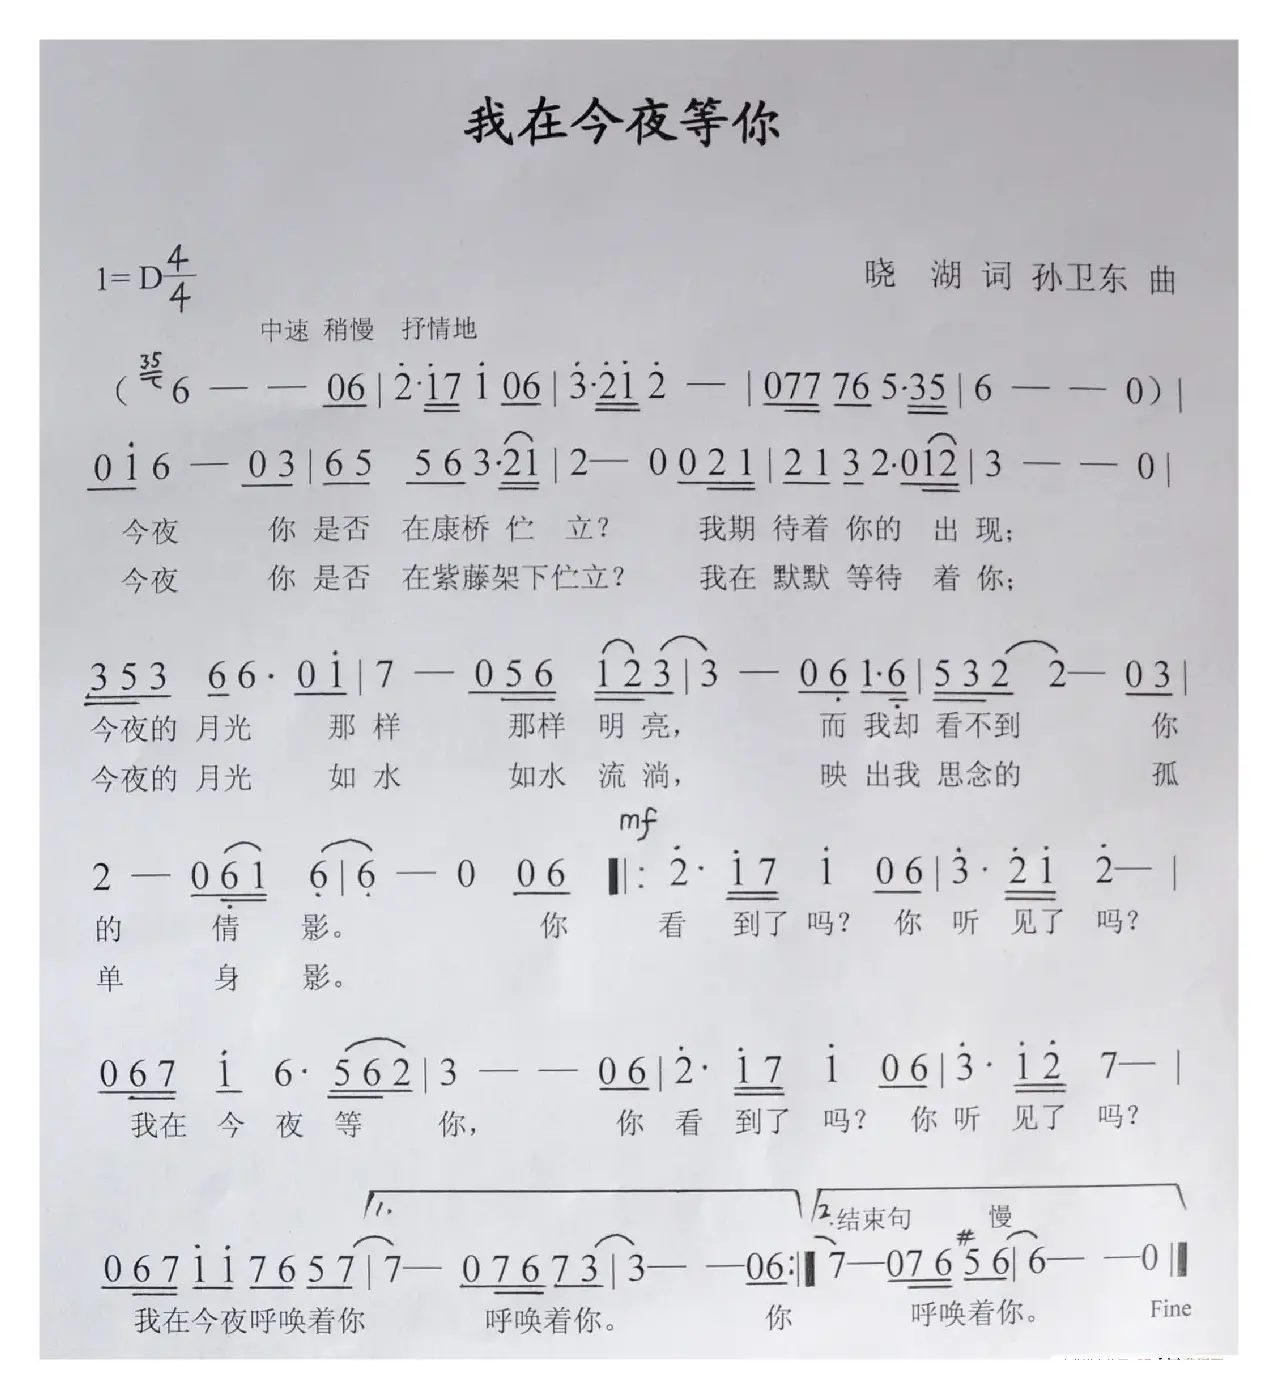 我在今夜等你
1=D 4/4
晓 湖 词 孙卫东 曲
中速 稍慢 抒情地
( 35 6 — — 06 | 2̇·i̇7 i̇ 06 | 3̇·2̇i̇ 2̇ — | 077 76 5·35 | 6 — — 0 ) |
0 i̇ 6 — 0 3 | 6 5 5 6 3·21 | 2 — 0 0 2 1 | 2 1 3 2·012 | 3 — — 0 |
今夜 你 是否 在康桥 伫 立? 我期 待着 你的 出 现;
今夜 你 是否 在紫藤架下伫立? 我在 默默 等待 着 你;
3 5 3 6 6· 0 i̇ | 7 — 0 5 6 1 2 3 | 3 — 0 6̣ 1·6̣ | 5 3 2 2 — 0 3 |
今夜的 月光 那 样 那样 明 亮, 而 我却 看不到 你
今夜的 月光 如 水 如水 流 淌, 映 出我 思念的 孤
mf
2 — 0 6̣ 1 6̣ | 6̣ — 0 0 6 ‖: 2̇· i̇ 7 i̇ 0 6 | 3̇· 2̇ i̇ 2̇ — |
的 倩 影。 你 看 到了 吗? 你 听 见了 吗?
单 身 影。
0 6 7 i̇ 6· 5 6 2 | 3 — — 0 6 | 2̇· i̇ 7 i̇ 0 6 | 3̇· i̇ 2̇ 7 — |
我在 今 夜 等 你, 你 看 到了 吗? 你 听 见了 吗?
1. 2. 结束句 慢
0 6 7 i̇ i̇ 7 6 5 7 | 7 — 0 7 6 7 3 | 3 — — 06 :‖ 7 — 0 7 6 #5 6 | 6 — — 0 ‖
我在今夜呼唤着你 呼唤着你。 你 呼唤着你。 Fine